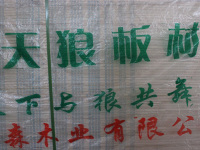 天狼板材
下与狼共舞
森木业有限公